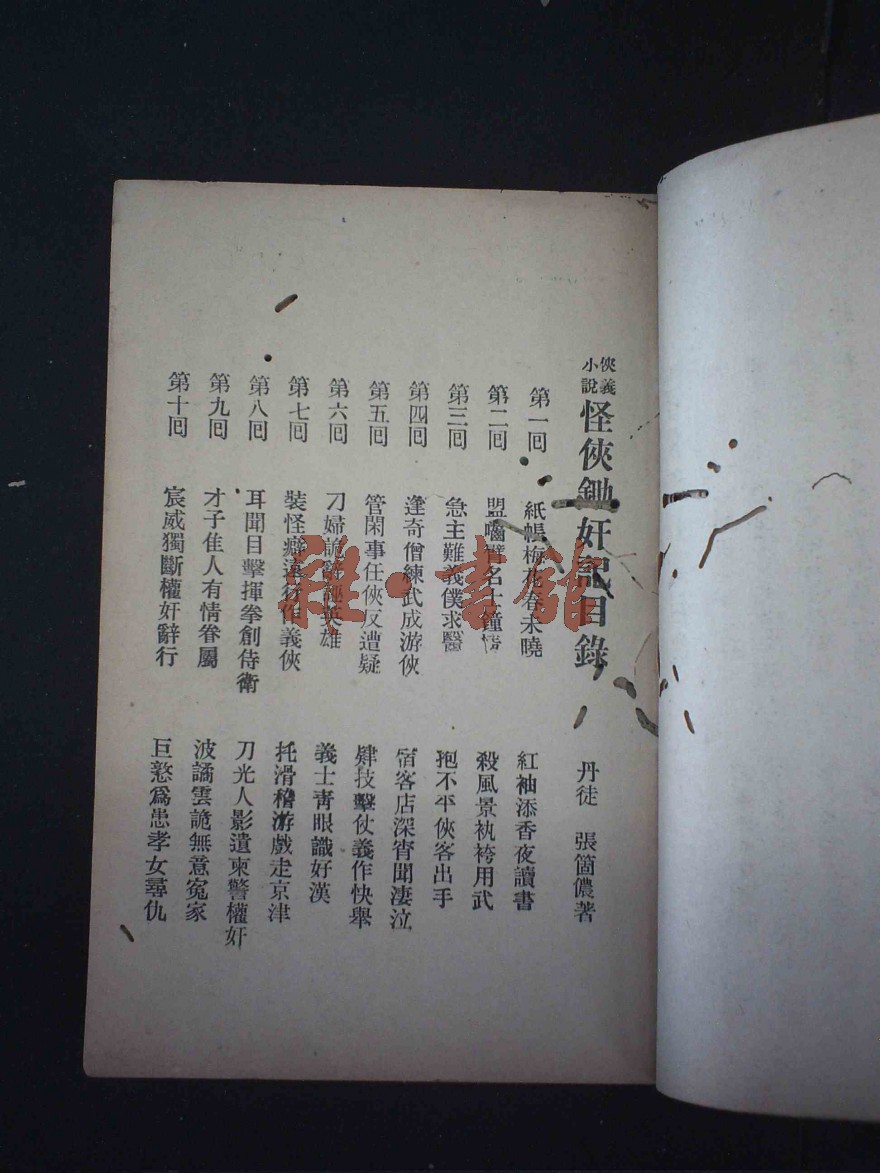 俠義小說 怪俠鋤奸記目錄 丹徒 張箇儂著
第一回 紙帳梅花春未曉 紅袖添香夜讀書
第二回 盟嚙臂名士鍾情 殺風景紈袴用武
第三回 急主難義僕求醫 抱不平俠客出手
第四回 逢奇僧練武成游俠 宿客店深宵聞淒泣
第五回 管閑事任俠反遭疑 肆技擊仗義作快舉
第六回 刁婦詭辭誣英雄 義士靑眼識好漢
第七回 裝怪癖遠行作義俠 托滑稽游戲走京津
第八回 耳聞目擊揮拳創侍衛 刀光人影遺柬警權奸
第九回 才子佳人有情眷屬 波譎雲詭無意寃家
第十回 宸威獨斷權奸辭行 巨憝爲患孝女尋仇
雅·書館